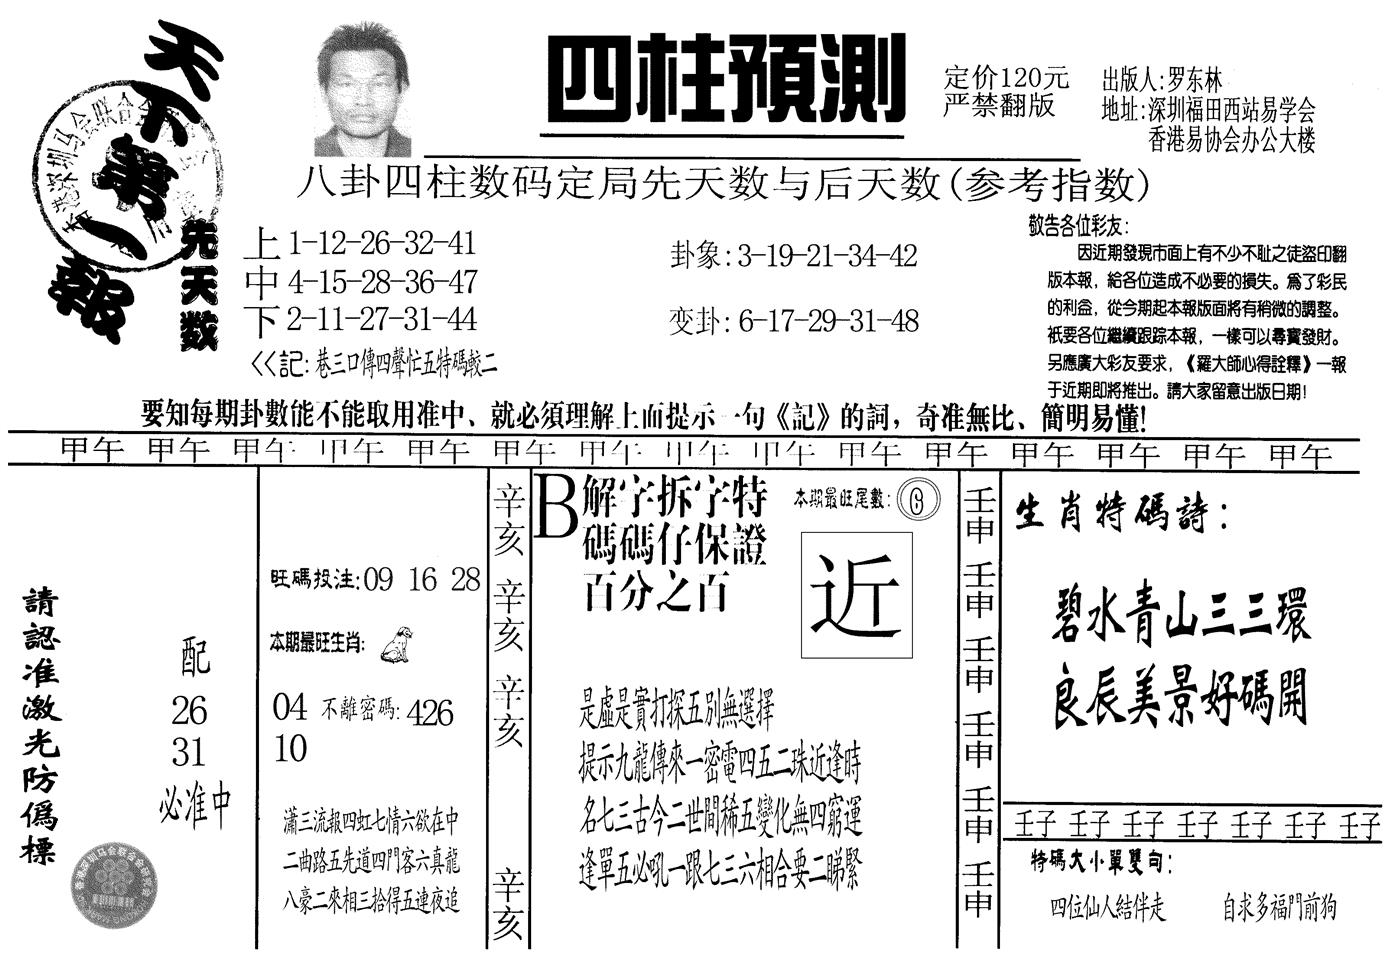 天下第一報
四柱預測
定价120元
严禁翻版
出版人:罗东林
地址:深圳福田西站易学会
香港易协会办公大楼
八卦四柱数码定局先天数与后天数(参考指数)
先天数
上 1-12-26-32-41
中 4-15-28-36-47
下 2-11-27-31-44
<<記: 巷三口傳四聲忙五特碼較二
卦象: 3-19-21-34-42
变卦: 6-17-29-31-48
敬告各位彩友:
因近期發現市面上有不少不耻之徒盜印翻
版本報，給各位造成不必要的損失。爲了彩民
的利益，從今期起本報版面將有稍微的調整。
衹要各位繼續跟踪本報，一樣可以尋寶發財。
另應廣大彩友要求，《羅大師心得詮釋》一報
于近期即將推出。請大家留意出版日期!
要知每期卦數能不能取用准中、就必須理解上面提示一句《記》的詞，奇准無比、簡明易懂!
甲午 甲午 甲午 甲午 甲午 甲午 甲午 甲午 甲午 甲午 甲午 甲午 甲午 甲午 甲午
請認准激光防僞標
配
26
31
必准中
旺碼投注:09 16 28
本期最旺生肖:
04 不離密碼: 426
10
瀟三流報四虹七情六欲在中
二曲路五先道四門客六真龍
八豪二來相三拾得五連夜追
辛亥 辛亥 辛亥 辛亥
B
解字拆字特
碼碼仔保證
百分之百
本期最旺尾數: 6
近
是虛是實打探五別無選擇
提示九龍傳來一密電四五二珠近逢時
名七三古今二世間稀五變化無四窮運
逢單五必吼一跟七三六相合要二睇緊
壬申 壬申 壬申 壬申 壬申 壬申
生肖特碼詩:
碧水青山三三環
良辰美景好碼開
壬子 壬子 壬子 壬子 壬子 壬子 壬子
特碼大小單雙句:
四位仙人結伴走 自求多福門前狗